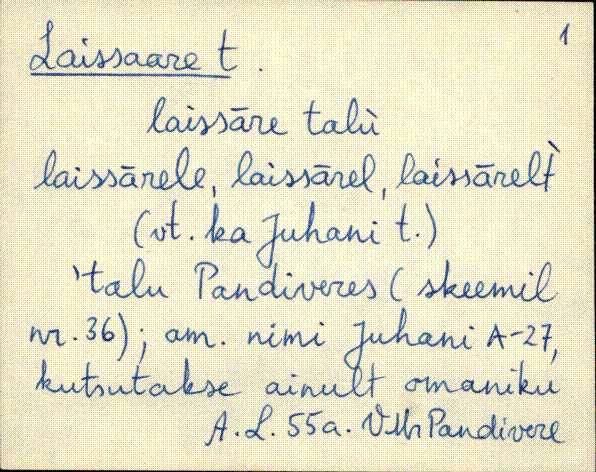 1
Laissaare t.
laissāre talù
laissārele, laissārel, laissārelt̀
(vt. ka Juhani t.)
'talu Pandiveres (skeemil
nr. 36); am. nimi Juhani A-27,
kutsutakse ainult omaniku
A. L. 55a. VMr Pandivere